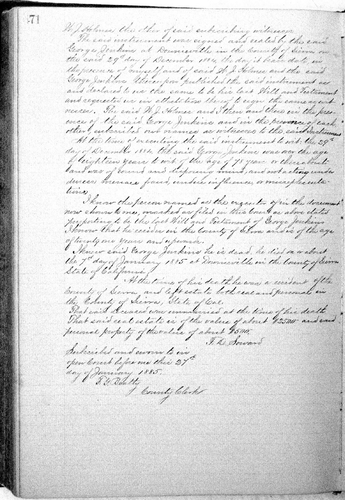 71
W J Holmes the other of said subscribing witnesses
The said instrument was signed and sealed by the said
George Jenkins at Downieville in the County of Sierra on
the said 29th day of December 1884, the day it bears date, in
the presence of myself and of said W J Holmes and the said
George Jenkins thereupon published the said instrument as
and declared to us the same to be his last Will and Testament
and requested us in attestation thereof to sign the same as wit
nesses. The said W J Holmes and I then and there in the pres-
ence of the said George Jenkins and in the presence of each
other, subscribed our names as witnesses to the said instrument
At the time of executing the said instrument to wit the 29th
day of December 1884, the said George Jenkins was over the age
of eighteen years to wit of the age of 71 years or thereabouts
and was of sound and disposing mind, and not acting under
duress menace fraud, undue influence, or misrepresenta
tions
I know the person named as the executor of in the document
now shown to me, marked as filed in this Court as above stated
purporting to be the last Will and Testament of George Jenkins
I know that he resides in the County of Sierra and is of the age
of twenty one years and upwards
I knew said George Jenkins he is dead, he died on or about
the 7th day of January 1885 at Downieville in the County of Sierra
State of California
At the time of his death he was a resident of the
County of Sierra and left estate both real and personal in
the County of Sierra, State of Cal.
That said deceased was unmarried at the time of his death
That said real estate is of the value of about $2500 and said
personal property of the value of about $500.
F. D. Soward
Subscribed and sworn to in
open Court before me this 27th
day of January 1885.
County Clerk